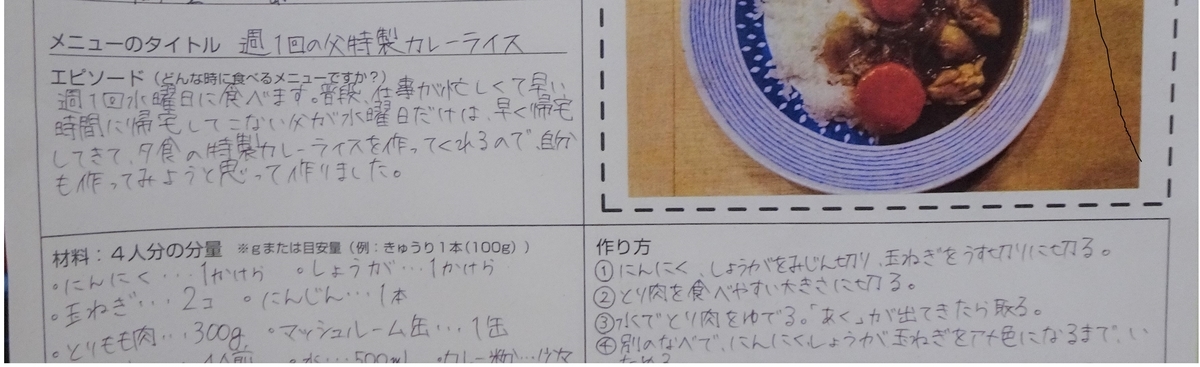 メニューのタイトル 週1回の父特製カレーライス
エピソード(どんな時に食べるメニューですか?)
週1回水曜日に食べます。普段、仕事が忙しくて早い
時間に帰宅してこない父が水曜日だけは、早く帰宅
してきて、夕食の特製カレーライスを作ってくれるので、自分
も作ってみようと思って作りました。
材料:4人分の分量 ※gまたは目安量(例:きゅうり1本(100g))
・にんにく…1かけら ・しょうが…1かけら
・玉ねぎ…2コ ・にんじん…1本
・とりもも肉…300g ・マッシュルーム缶…1缶
4人前 ・水…500ml ・カレー粉…
作り方
①にんにく、しょうがをみじん切り、玉ねぎをうす切りに切る。
②とり肉を食べやすい大きさに切る。
③水でとり肉をゆでる。「あく」が出てきたら取る。
④別のなべで、にんにくしょうが玉ねぎをアメ色になるまで、い
ためる